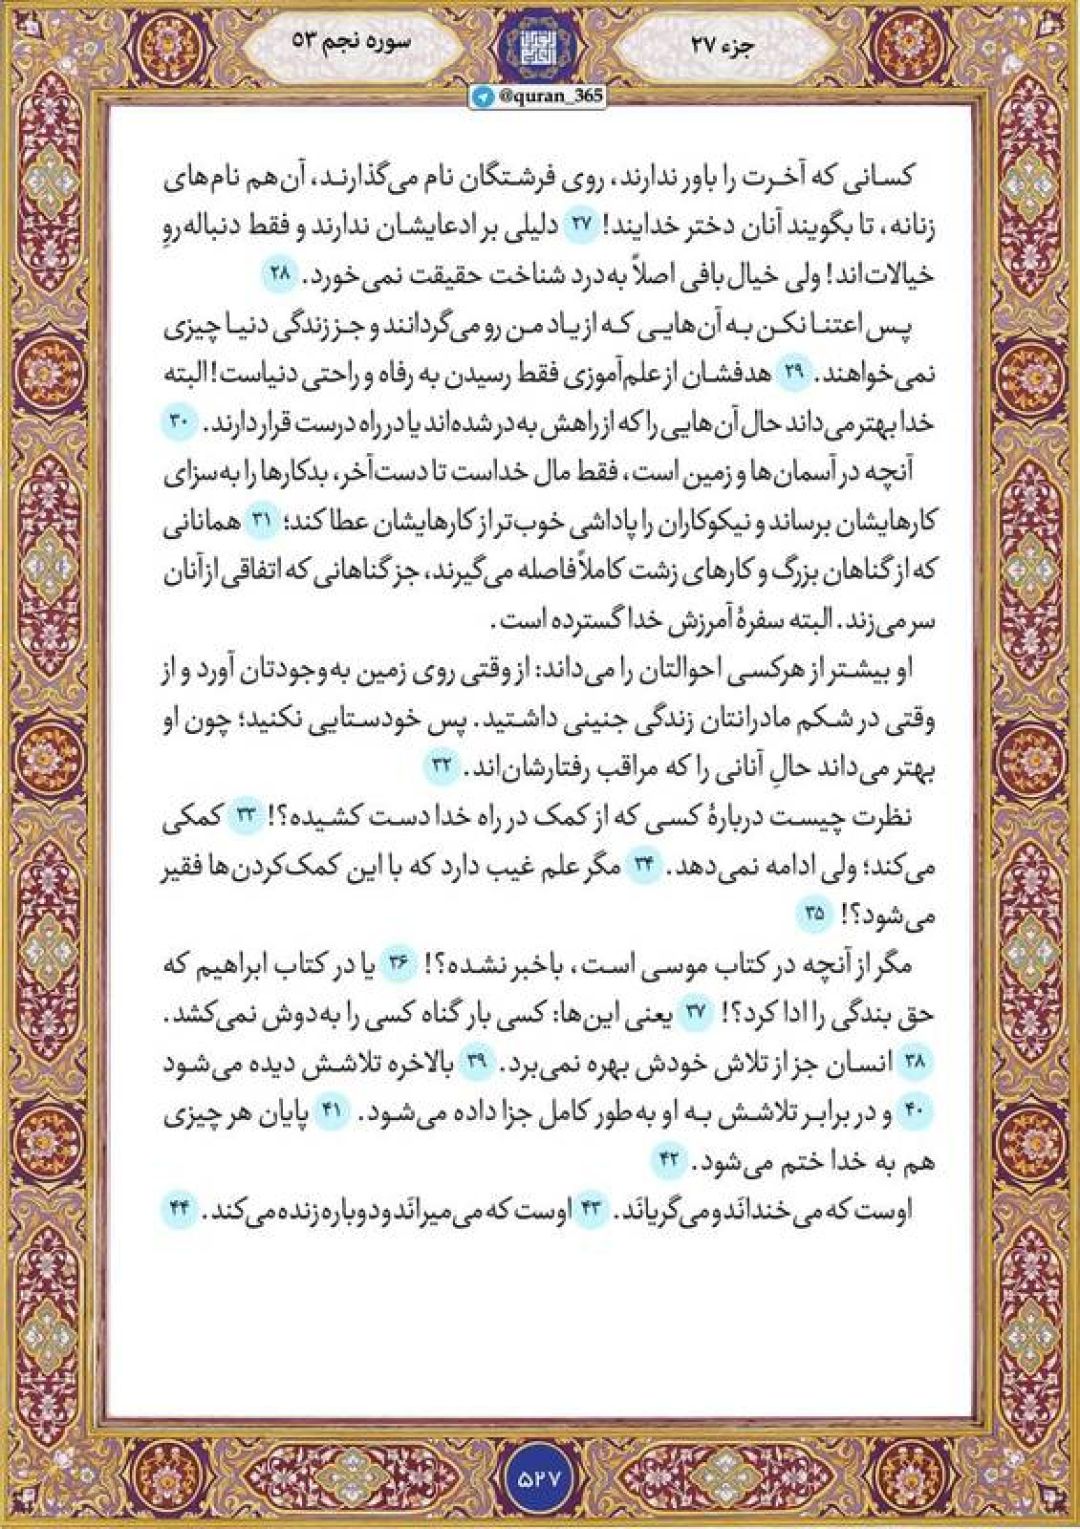 جزء ۲۷
سوره نجم ۵۳
@quran_365
کسانی که آخرت را باور ندارند، روی فرشتگان نام می‌گذارند، آن هم نام‌های
زنانه، تا بگویند آنان دختر خدایند! ۲۷ دلیلی بر ادعایشان ندارند و فقط دنباله‌روِ
خیالات‌اند! ولی خیال‌بافی اصلاً به‌درد شناخت حقیقت نمی‌خورد. ۲۸
پس اعتنا نکن به آن‌هایی که از یاد من رو می‌گردانند و جز زندگی دنیا چیزی
نمی‌خواهند. ۲۹ هدفشان از علم‌آموزی فقط رسیدن به رفاه و راحتی دنیاست! البته
خدا بهتر می‌داند حال آن‌هایی را که از راهش به‌در شده‌اند یا در راه درست قرار دارند. ۳۰
آنچه در آسمان‌ها و زمین است، فقط مال خداست تا دست‌آخر، بدکارها را به‌سزای
کارهایشان برساند و نیکوکاران را پاداشی خوب‌تر از کارهایشان عطا کند؛ ۳۱ همانانی
که از گناهان بزرگ و کارهای زشت کاملاً فاصله می‌گیرند، جز گناهانی که اتفاقی از آنان
سر می‌زند. البته سفرهٔ آمرزش خدا گسترده است.
او بیشتر از هرکسی احوالتان را می‌داند: از وقتی روی زمین به‌وجودتان آورد و از
وقتی در شکم مادرانتان زندگی جنینی داشتید. پس خودستایی نکنید؛ چون او
بهتر می‌داند حالِ آنانی را که مراقب رفتارشان‌اند. ۳۲
نظرت چیست دربارهٔ کسی که از کمک در راه خدا دست کشیده؟! ۳۳ کمکی
می‌کند؛ ولی ادامه نمی‌دهد. ۳۴ مگر علم غیب دارد که با این کمک‌کردن‌ها فقیر
می‌شود؟! ۳۵
مگر از آنچه در کتاب موسی است، باخبر نشده؟! ۳۶ یا در کتاب ابراهیم که
حق بندگی را ادا کرد؟! ۳۷ یعنی این‌ها: کسی بار گناه کسی را به‌دوش نمی‌کشد.
۳۸ انسان جز از تلاش خودش بهره نمی‌برد. ۳۹ بالاخره تلاشش دیده می‌شود
۴۰ و در برابر تلاشش به او به‌طور کامل جزا داده می‌شود. ۴۱ پایان هر چیزی
هم به خدا ختم می‌شود. ۴۲
اوست که می‌خندانَد و می‌گریانَد. ۴۳ اوست که می‌میرانَد و دوباره زنده می‌کند. ۴۴
۵۲۷